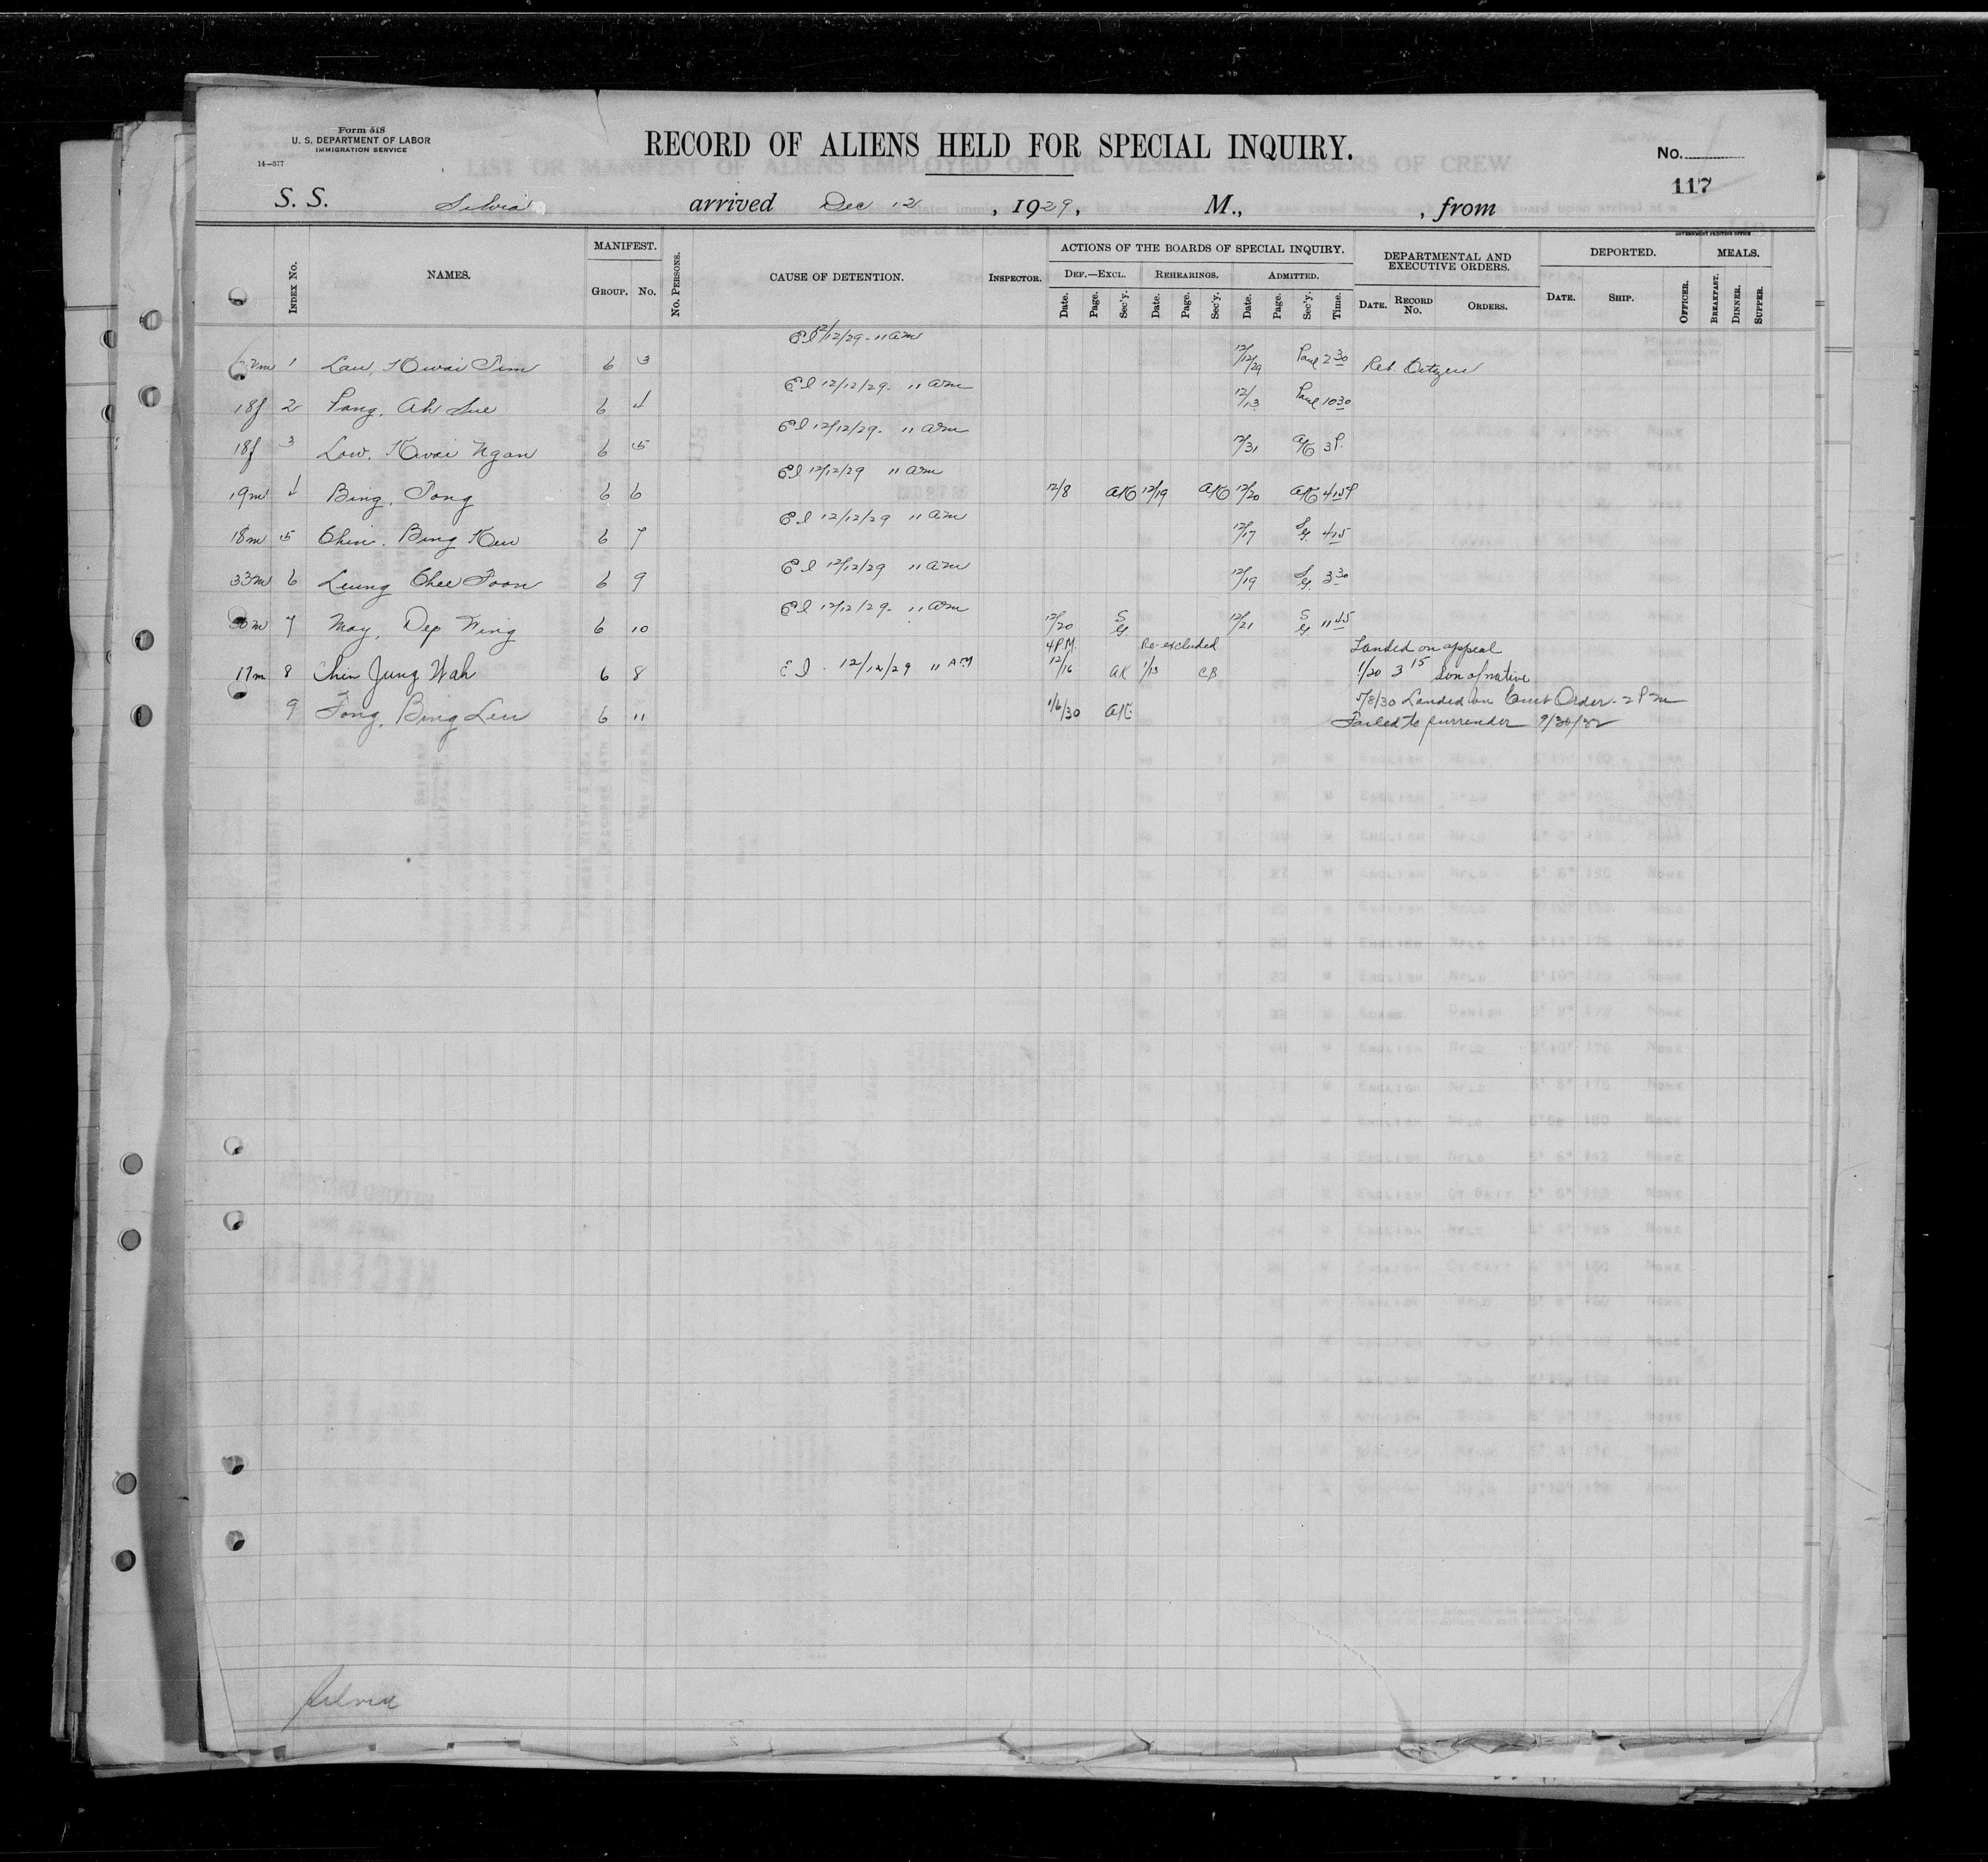 Form 518
U. S. DEPARTMENT OF LABOR
IMMIGRATION SERVICE
14—377
RECORD OF ALIENS HELD FOR SPECIAL INQUIRY.
No.
117
S. S. Silvia arrived Dec 12, 1929, M., , from
GOVERNMENT PRINTING OFFICE
INDEX No. NAMES. MANIFEST. GROUP. No. No. PERSONS. CAUSE OF DETENTION. INSPECTOR.
ACTIONS OF THE BOARDS OF SPECIAL INQUIRY. DEPARTMENTAL AND EXECUTIVE ORDERS. DEPORTED. MEALS.
DEF.—EXCL. REHEARINGS. ADMITTED.
Date. Page. Sec'y. Date. Page. Sec'y. Date. Page. Sec'y. Time. DATE. RECORD No. ORDERS. DATE. SHIP. OFFICER. BREAKFAST. DINNER. SUPPER.
EI 12/12/29 - 11 am
1 Lau, Kwai Tim 6 3 12/12/29 Paul 2 30 Ret. Citizen
EI 12/12/29 - 11 am
18f 2 Pang, Ah Sue 6 4 12/13 Paul 10 30
EI 12/12/29 - 11 am
18f 3 Low, Kwai Ngan 6 5 12/31 AK 3 P.
EI 12/12/29 11 am
19m 4 Bing, Tong 6 6 12/8 AK 12/19 AK 12/20 AK 4 15 P
EI 12/12/29 11 am
18m 5 Chin, Bing Kew 6 7 12/17 SG. 4 15
EI 12/12/29 11 am
33m 6 Leung Chee Toon 6 9 12/19 SG. 3 30
EI 12/12/29 - 11 am
30m 7 Moy, Dep Wing 6 10 12/20 SG 12/21 SG 11 45
4 P.M. Re-excluded Landed on appeal
17m 8 Chin Jung Wah 6 8 EI - 12/12/29 11 AM 12/16 AK 1/13 CB 1/20 3 15 Son of native
9 Tong, Bing Leu 6 11 1/6/30 AK 5/8/30 Landed on Court Order - 2 Pm
Failed to surrender 9/30/32
Silvia